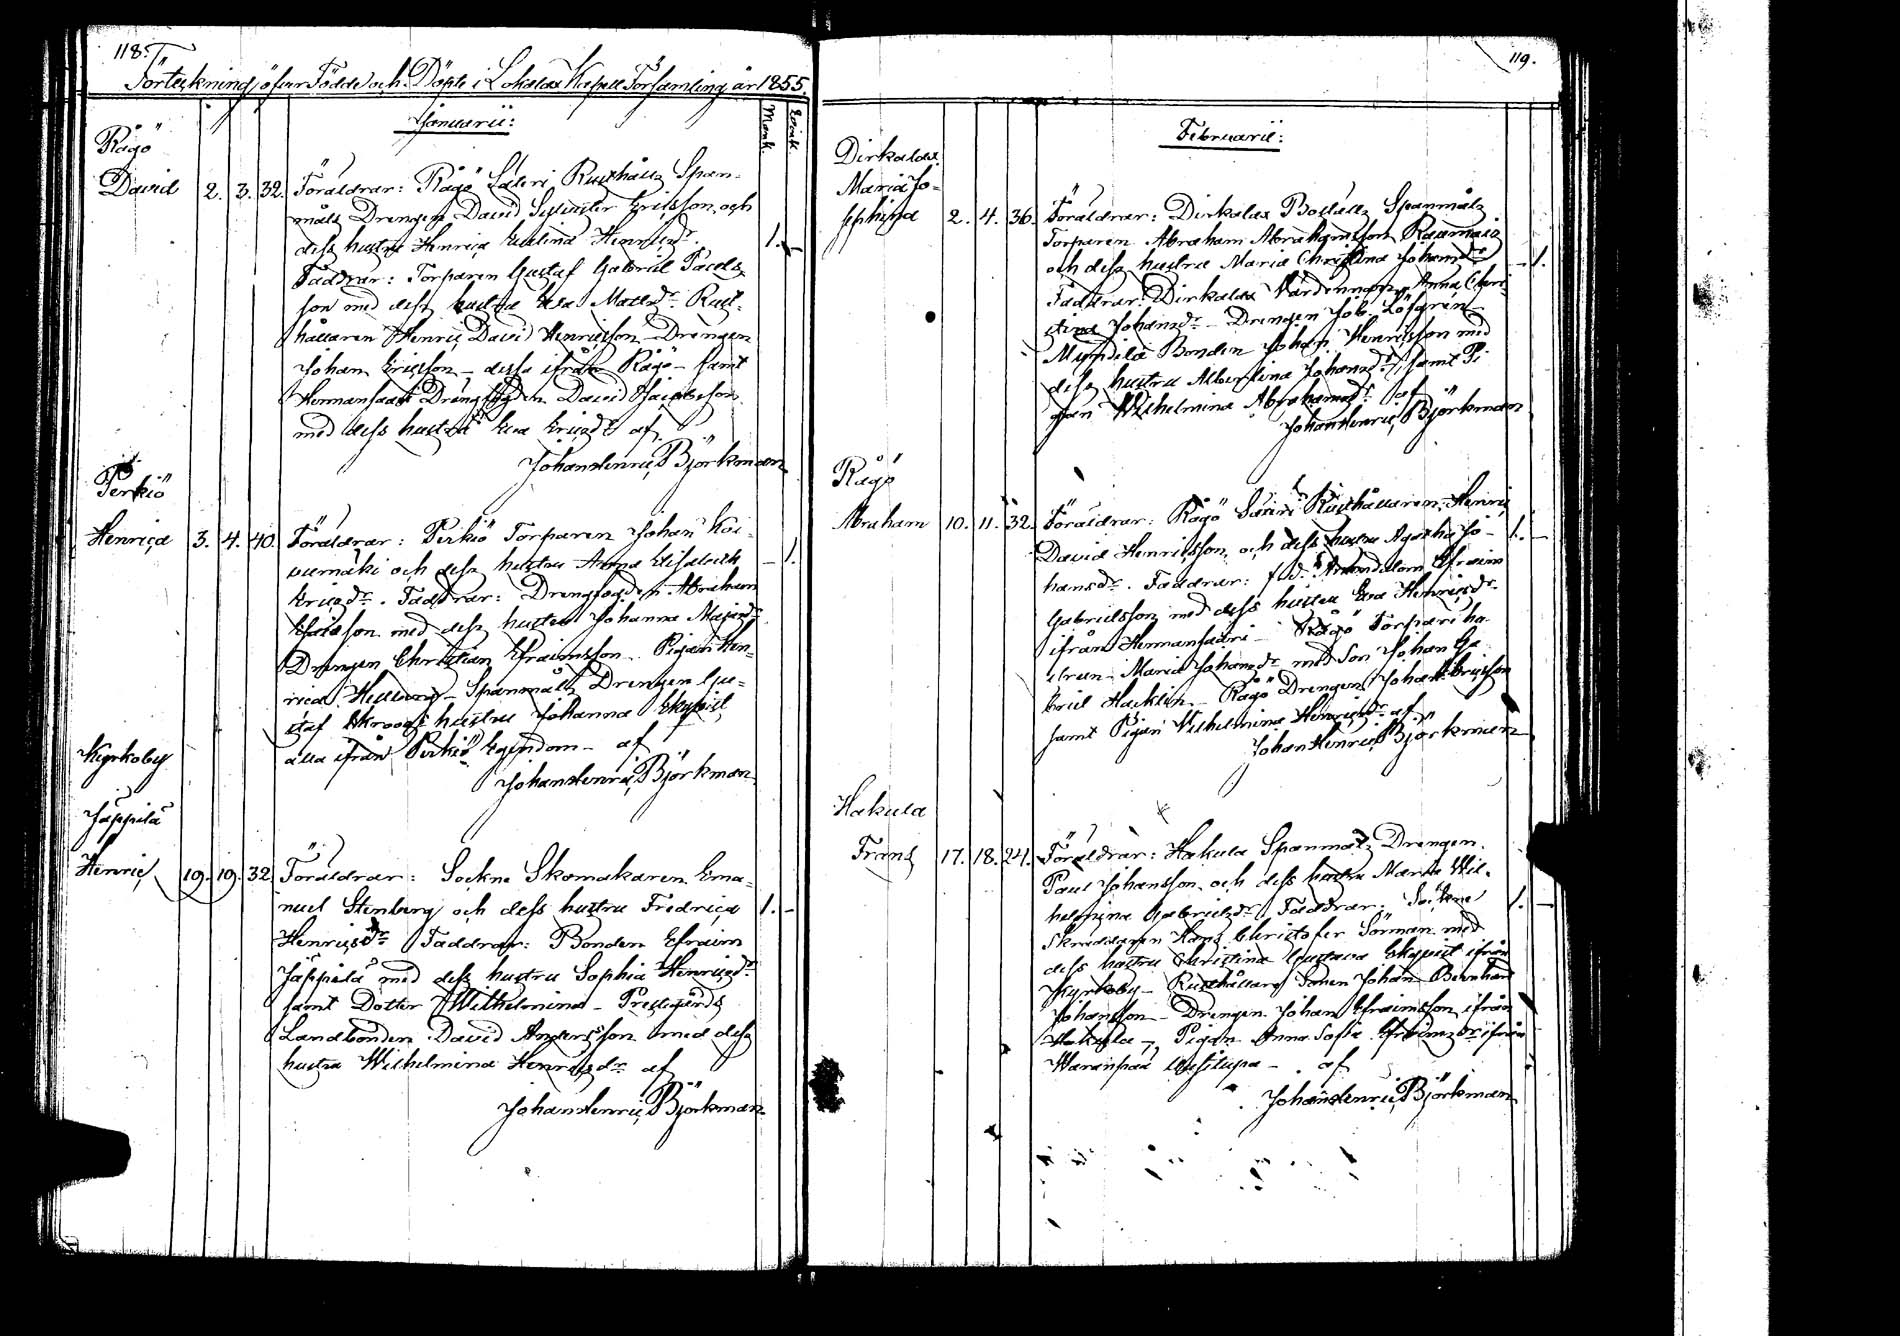 118.
Förteckning öfver Födde och Döpte i Lokalax Kapell Församling år 1855.
Januarii:
Mank.
Qvink.
Rågö
David 2. 3. 32. Föräldrar: Rågö Säteri Rusthålls Span-
måls Drengen David Sylvester Ericsson och
dess hustru Henrica Eulina Henricsdr. 1. -
Faddrar: Torparen Gustaf Gabriel Pauls-
son med dess hustru Eva Matsdr Rust-
hållaren Henric David Henricsson Drengen
Johan Ericsson – dessa ifrån Rågö – samt
Hermansaari Drengfogden David
med dess hustru Eva Ericsdr af
Johan Henric Björkman
Perkiö
Henrica 3. 4. 40. Föräldrar: Perkiö Torparen Johan Koi-
vumäki och dess hustru Anna Elisabeth - 1.
Ericsdr. Faddrar: Drengfogden Abraham
Esaiasson med dess hustru Johanna
Drengen Christian Efraimsson. Pigan Hen-
rica Spanmåls Drengen Gu-
staf Skroogs hustru Johanna Ekqvist,
alla ifrån Perkiö Egendom – af
Johan Henric Björkman
Kyrkoby
Jäppilä
Henric 19. 19. 32. Föräldrar: Sockne Skomakaren Ema-
nuel Stenberg och dess hustru Fredrica 1. -
Henricsdr Faddrar: Bonden Efraim
Jäppilä med dess hustru Sophia Henricsdr
samt Dotter Wilhelmina – Prestgårds
Landbonden David Andersson med dess
hustru Wilhelmina Henricsdr af
Johan Henric Björkman
119.
Februarii:
Dirkalax
Maria Jo-
sephina 2. 4. 36. Föräldrar: Dirkalax Boställs Spanmåls
Torparen Abraham Abrahamsson Raumaig
och dess hustru Maria Christina Johansdr - 1.
Faddrar: Dirkalax Värdinnan Anna Chri-
stina Johansdr – Drengen Job Löfgrén –
Myndilä Bonden Johan Henricsson med
dess hustru Albertina Johansdr, samt Pi-
gan Wilhelmina Abrahamsdr af
Johan Henric Björkman
Rågö
Abraham 10. 11. 32. Föräldrar: Rågö Säteri Rusthållaren Henric
David Henricsson och dess hustru Agatha Jo- 1. -
hansdr. Faddrar: f.d. Efraim
Gabrielsson med dess hustru Eva Henricsdr
ifrån Hermansaari – Rågö Torpari hu-
strun Maria Johansdr med Son Johan Ga-
briel Hacklin – Rågö Drengen Johan Ericsson
samt Pigan Wilhelmina Henricsdr af
Johan Henric Björkman
Hakula
Frans 17. 18. 24. Föräldrar: Hakula Spanmåls Drengen
Paul Johansson och dess hustru Maria Wil-
helmina Gabrielsdr, Faddrar: Sockne 1. -
Skräddaren Hans Christofer Sörman med
dess hustru Christina Gustava Ekqvist ifrån
Kyrkoby – Rusthållare Sonen Johan Bernhard
Johansson – Drengen Johan Efraimsson ifrån
Hakula –, Pigan Anna Sofia Efraimsdr ifrån
Waranpää – af
Johan Henric Björkman